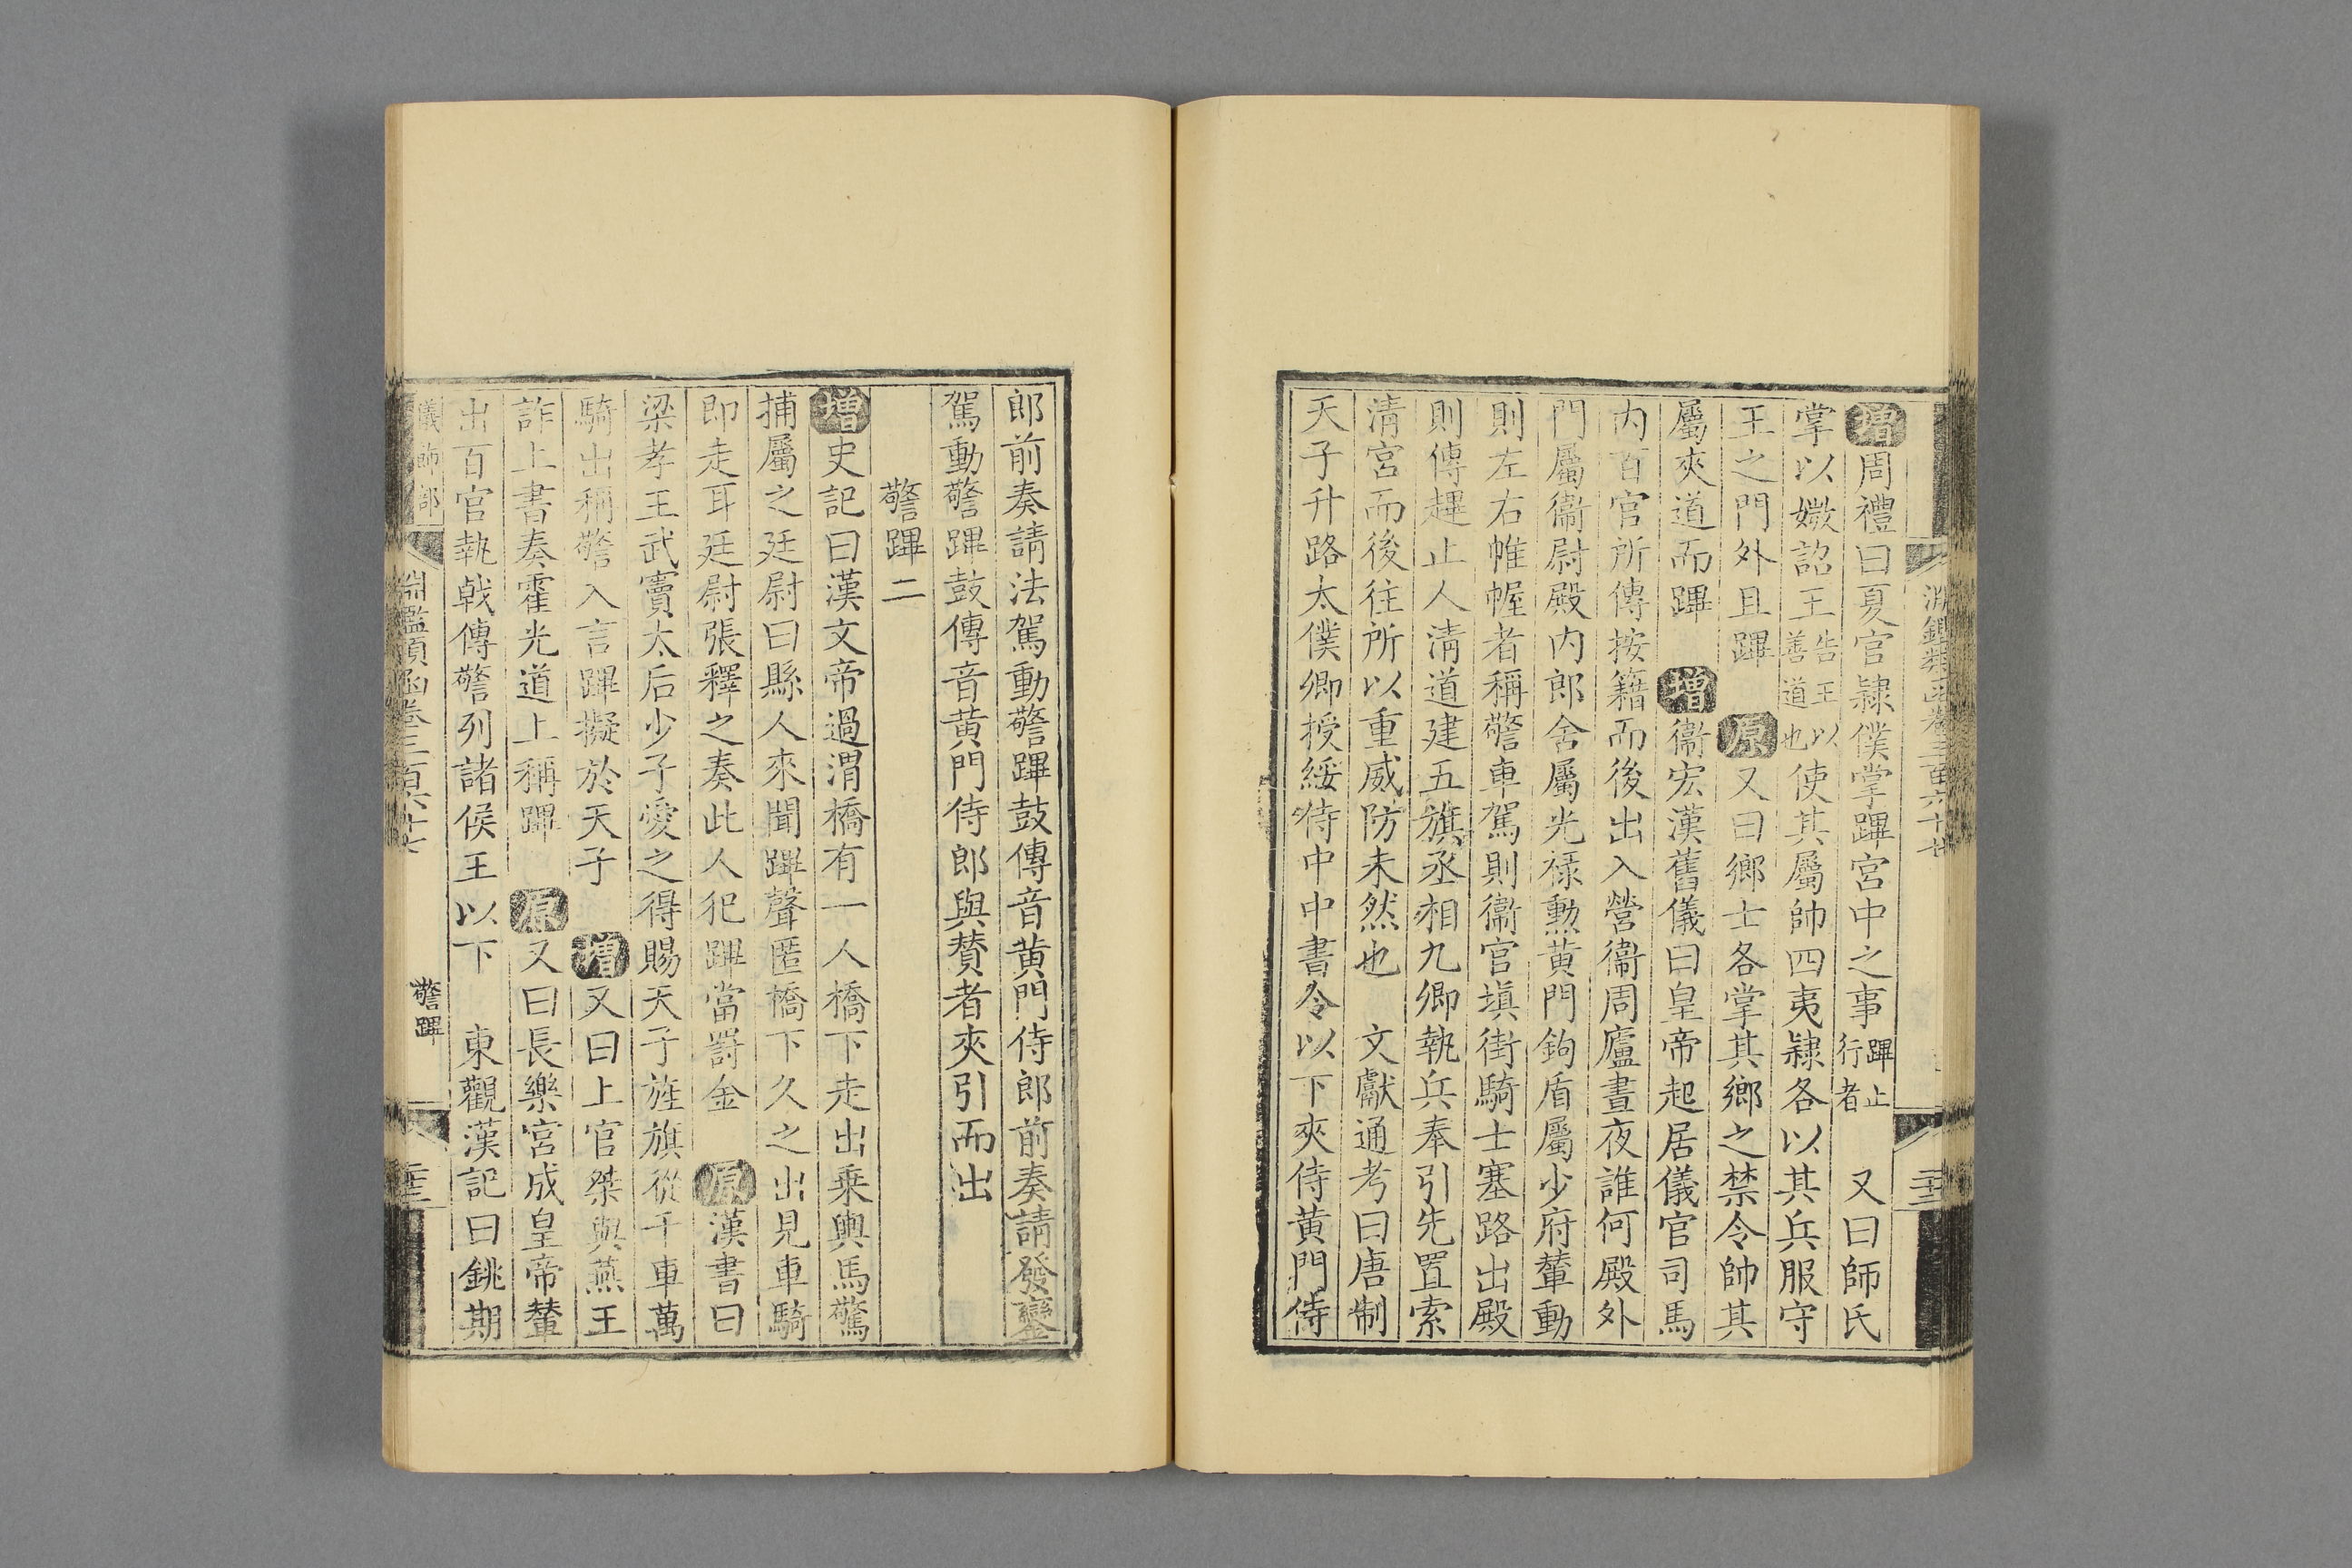 增周禮曰夏官隷僕掌蹕宮中之事蹕止行者　又曰師氏
掌以媺詔王告王以善道也以使其屬帥四夷隷各以其兵服守
王之門外且蹕　原又曰鄉士各掌其鄉之禁令帥其
屬夾道而蹕　增衞宏漢舊儀曰皇帝起居儀官司馬
内百官所傳按籍而後出入營衞周廬晝夜誰何殿外
門屬衞尉殿内郎舍屬光禄勲黄門鉤盾屬少府輦動
則左右帷幄者稱警車駕則衞官塡街騎士塞路出殿
則傳蹕止人清道建五旗丞相九卿執兵奉引先置索
清宮而後往所以重威防未然也　文獻通考曰唐制
天子升路太僕卿授綏侍中中書令以下夾侍黄門侍
郎前奏請法駕動警蹕鼓傳音黄門侍郎前奏請發鑾
駕動警蹕鼓傳音黄門侍郎與賛者夾引而出
警蹕二
增史記曰漢文帝過渭橋有一人橋下走出乗輿馬驚
捕屬之廷尉曰縣人來聞蹕聲匿橋下久之出見車騎
即走耳廷尉張釋之奏此人犯蹕當罰金　原漢書曰
梁孝王武竇太后少子愛之得賜天子旌旗從千車萬
騎出稱警入言蹕擬於天子　增又曰上官桀與燕王
詐上書奏霍光道上稱蹕　原又曰長樂宮成皇帝輦
出百官執戟傳警列諸侯王以下　東觀漢記曰銚期
儀飾部　淵鑑類函卷三百六十七　警蹕